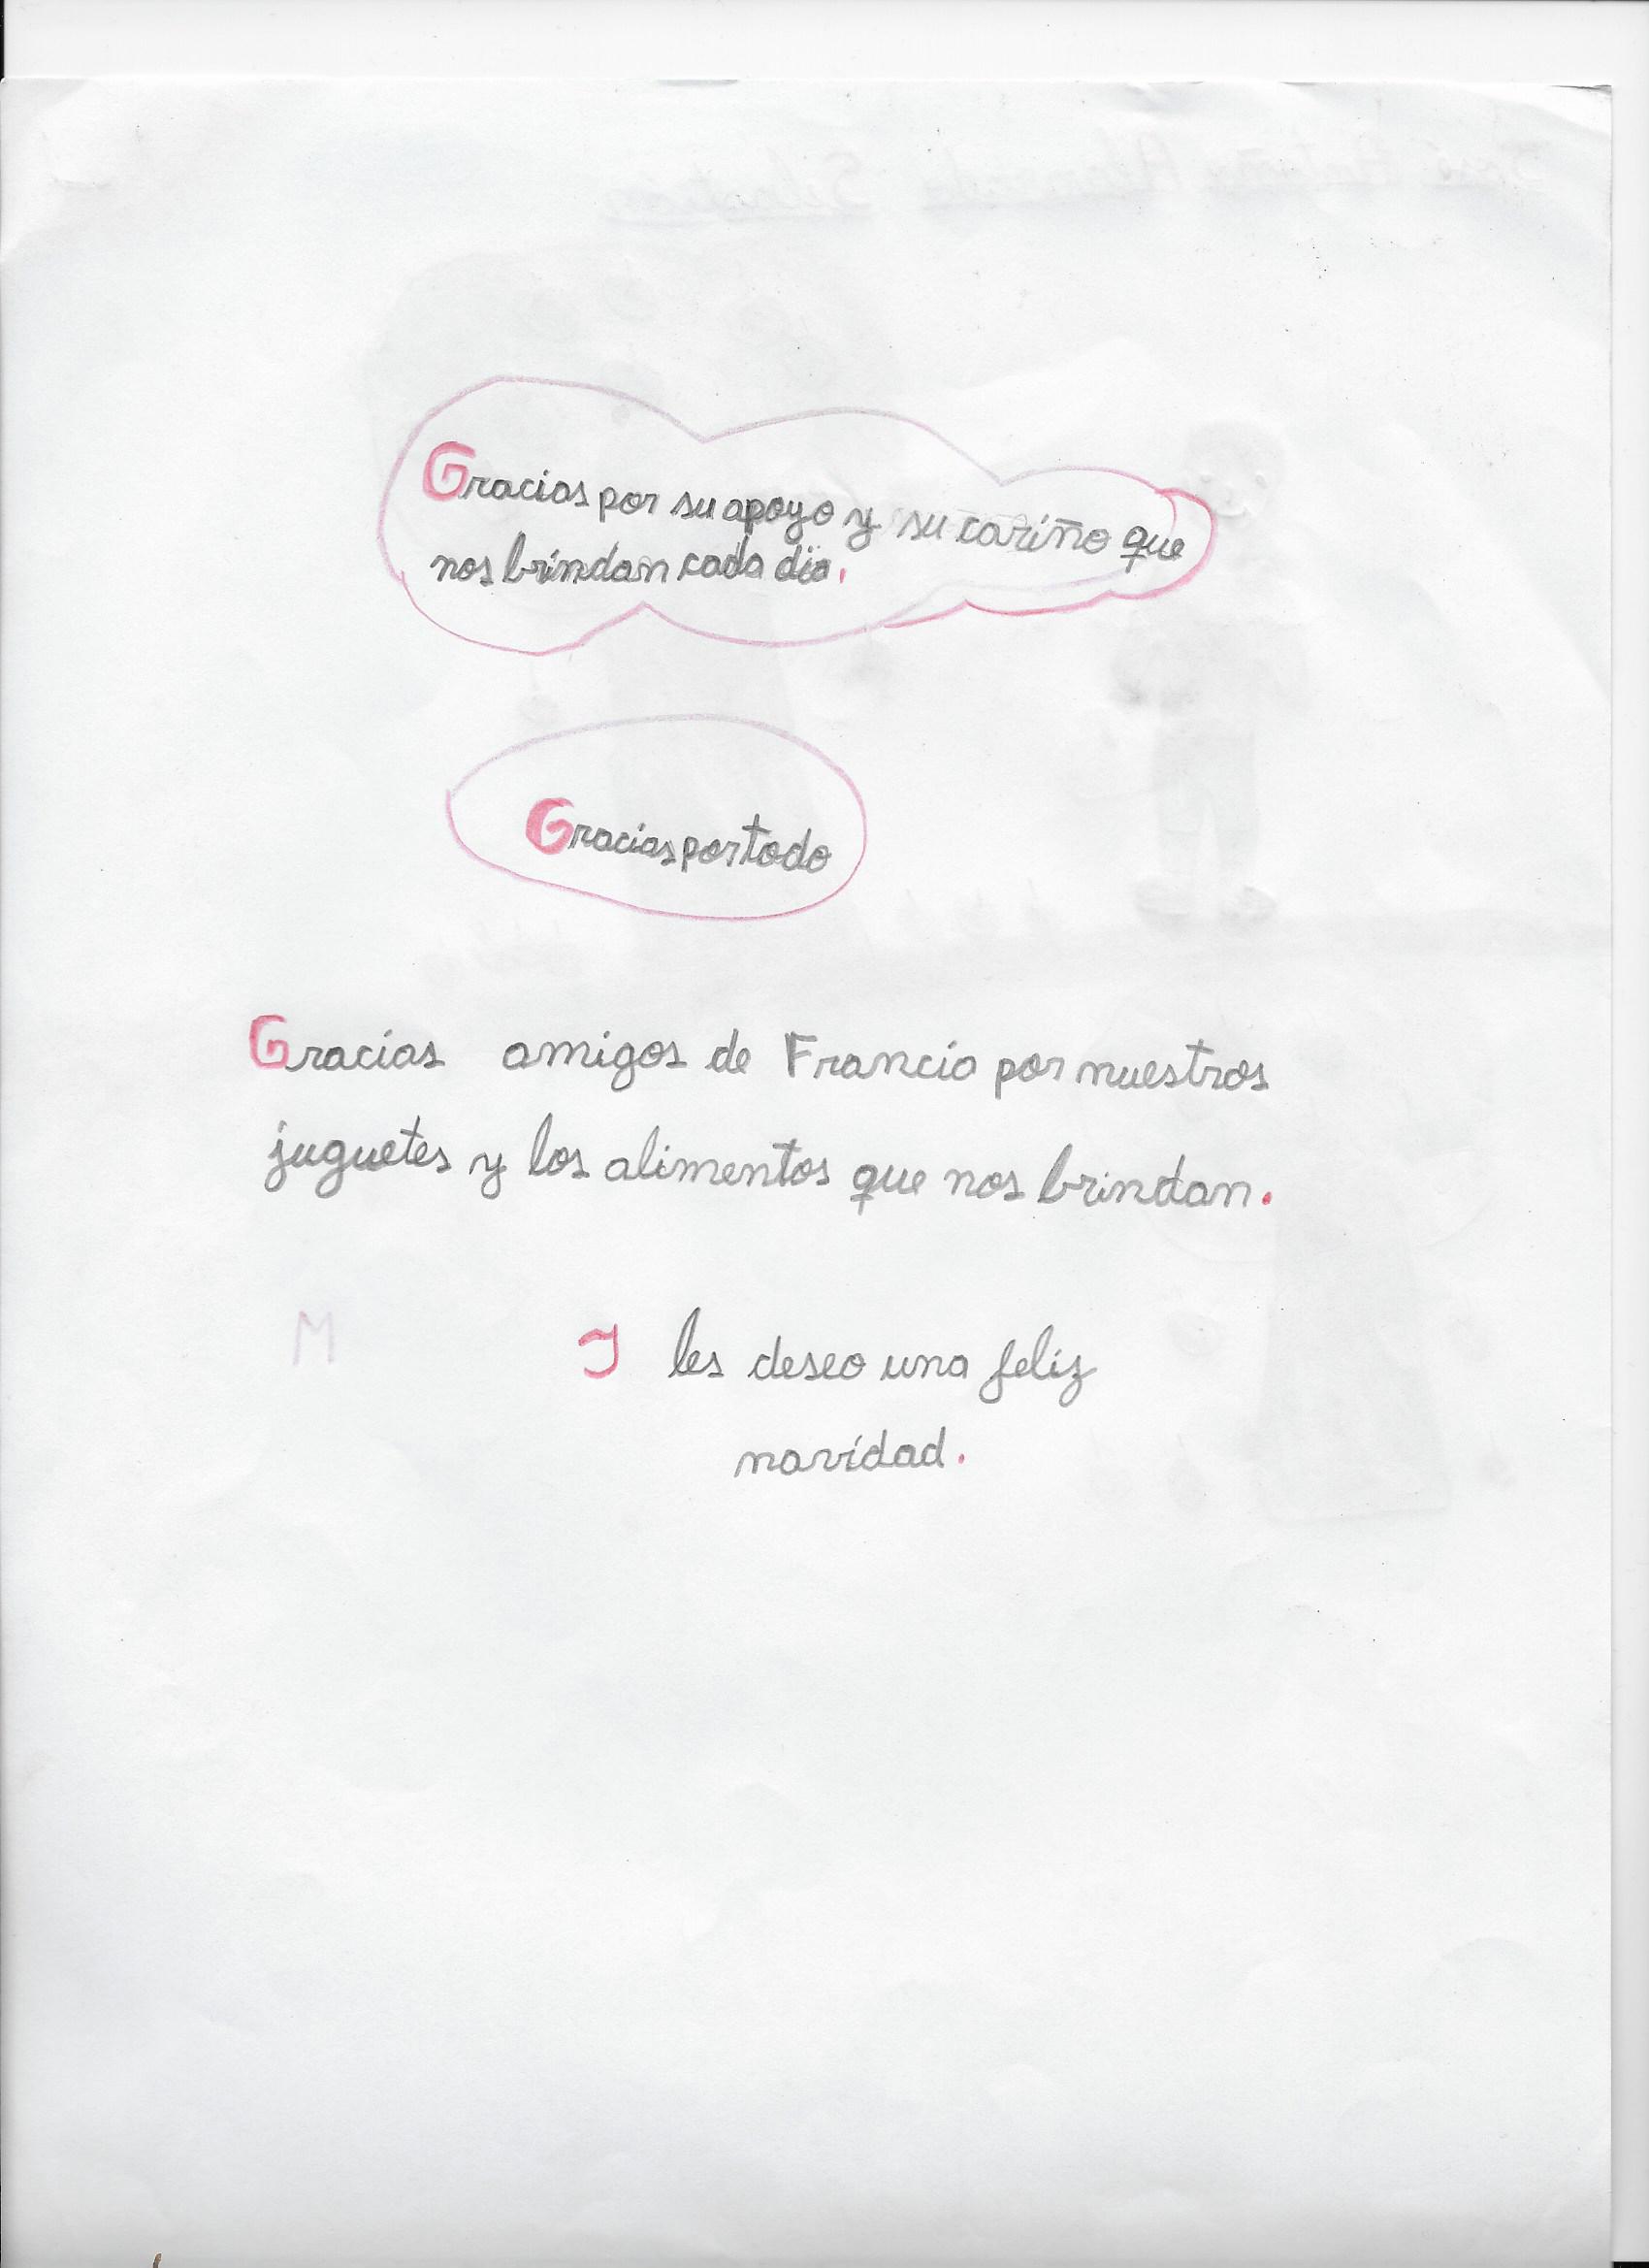 Gracias por su apoyo y su cariño que
nos brindan cada día.
Gracias por todo
Gracias amigos de Francia por nuestros
juguetes y los alimentos que nos brindan.
M
I les deseo una feliz
navidad.